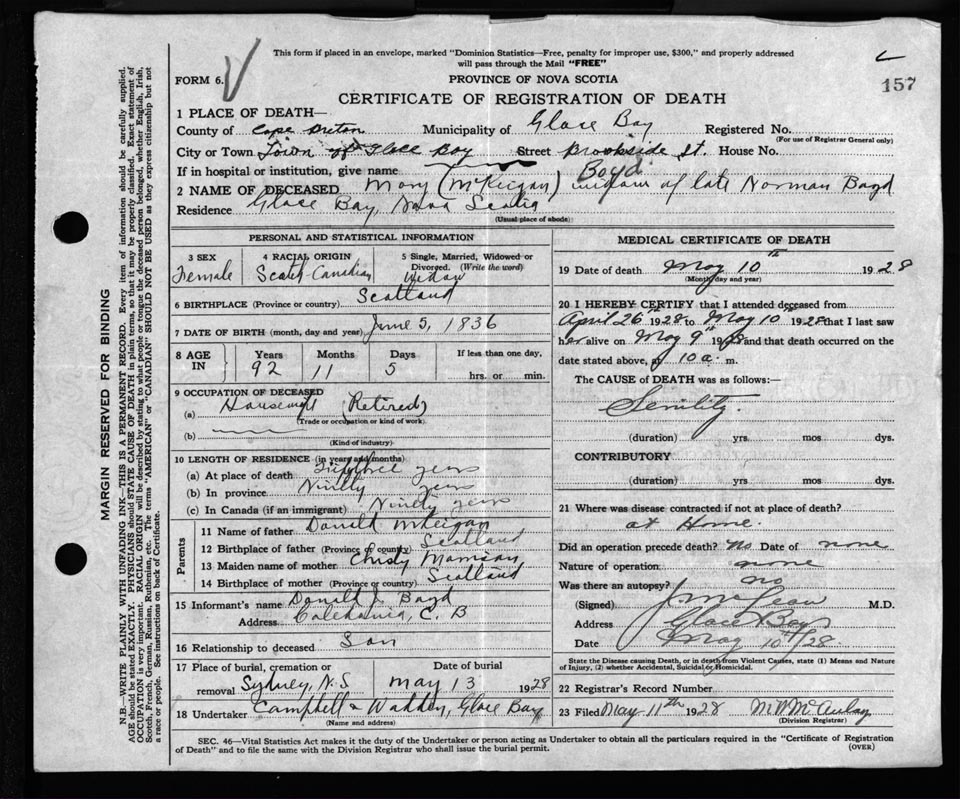 This form if placed in an envelope, marked "Dominion Statistics—Free, penalty for improper use, $300," and properly addressed
will pass through the Mail "FREE"
FORM 6. PROVINCE OF NOVA SCOTIA 157
CERTIFICATE OF REGISTRATION OF DEATH
1 PLACE OF DEATH—
County of Cape Breton Municipality of Glace Bay Registered No.
(For use of Registrar General only)
City or Town Town of Glace Bay Street Brookside St. House No.
If in hospital or institution, give name
Boyd
2 NAME OF DECEASED Mary (McKeigan) widow of late Norman Boyd
Residence Glace Bay, Nova Scotia
(Usual place of abode)
PERSONAL AND STATISTICAL INFORMATION
3 SEX 4 RACIAL ORIGIN 5 Single, Married, Widowed or
Divorced. (Write the word)
Female Scotch Canadian Widow
6 BIRTHPLACE (Province or country) Scotland
7 DATE OF BIRTH (month, day and year) June 5, 1836
8 AGE IN Years Months Days If less than one day,
92 11 5 hrs. or min.
9 OCCUPATION OF DECEASED
(a) Housewife (Retired)
(Trade or occupation or kind of work)
(b)
(Kind of industry)
10 LENGTH OF RESIDENCE (in years and months)
(a) At place of death years
(b) In province Ninety years
(c) In Canada (if an immigrant) Ninety years
Parents
11 Name of father Donald McKeigan
12 Birthplace of father (Province or country) Scotland
13 Maiden name of mother Christy Morrison
14 Birthplace of mother (Province or country) Scotland
15 Informant's name Donald J. Boyd
Address Caledonia, C. B
16 Relationship to deceased Son
17 Place of burial, cremation or Date of burial
removal Sydney, N.S May 13 1928
18 Undertaker Campbell & Wadden, Glace Bay
(Name and address)
MEDICAL CERTIFICATE OF DEATH
19 Date of death May 10th 1928
(Month, day and year)
20 I HEREBY CERTIFY that I attended deceased from
April 26th 1928 to May 10th 1928 that I last saw
her alive on May 9th 1928 and that death occurred on the
date stated above, at 10 a. m.
The CAUSE of DEATH was as follows:—
Senility.
(duration) yrs. mos dys.
CONTRIBUTORY
(duration) yrs. mos dys.
21 Where was disease contracted if not at place of death?
at Home.
Did an operation precede death? No Date of none
Nature of operation none
Was there an autopsy? no
(Signed) McLean M.D.
Address Glace Bay
Date May 10th/28
State the Disease causing Death, or in death from Violent Causes, state (1) Means and Nature
of Injury, (2) whether Accidental, Suicidal or Homicidal.
22 Registrar's Record Number
23 Filed May 11th 1928 McAulay
(Division Registrar)
SEC. 46—Vital Statistics Act makes it the duty of the Undertaker or person acting as Undertaker to obtain all the particulars required in the "Certificate of Registration
of Death" and to file the same with the Division Registrar who shall issue the burial permit. (OVER)
MARGIN RESERVED FOR BINDING
N.B.—WRITE PLAINLY WITH UNFADING INK—THIS IS A PERMANENT RECORD. Every item of information should be carefully supplied.
AGE should be stated EXACTLY. PHYSICIANS should STATE CAUSE OF DEATH in plain terms, so that it may be properly classified. Exact statement of
OCCUPATION is very important. RACIAL ORIGIN will be described by stating to what people or tongue the deceased person belonged, whether English, Irish,
Scotch, French, German, Russian, Ruthenian, etc. The terms "AMERICAN" or "CANADIAN" SHOULD NOT BE USED as they express citizenship but not
a race or people. See instructions on back of Certificate.